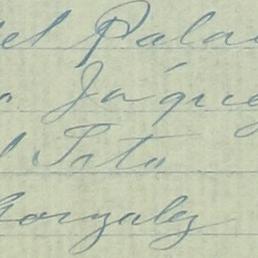 el Pala
Jáque
l Soto
Gonzalez